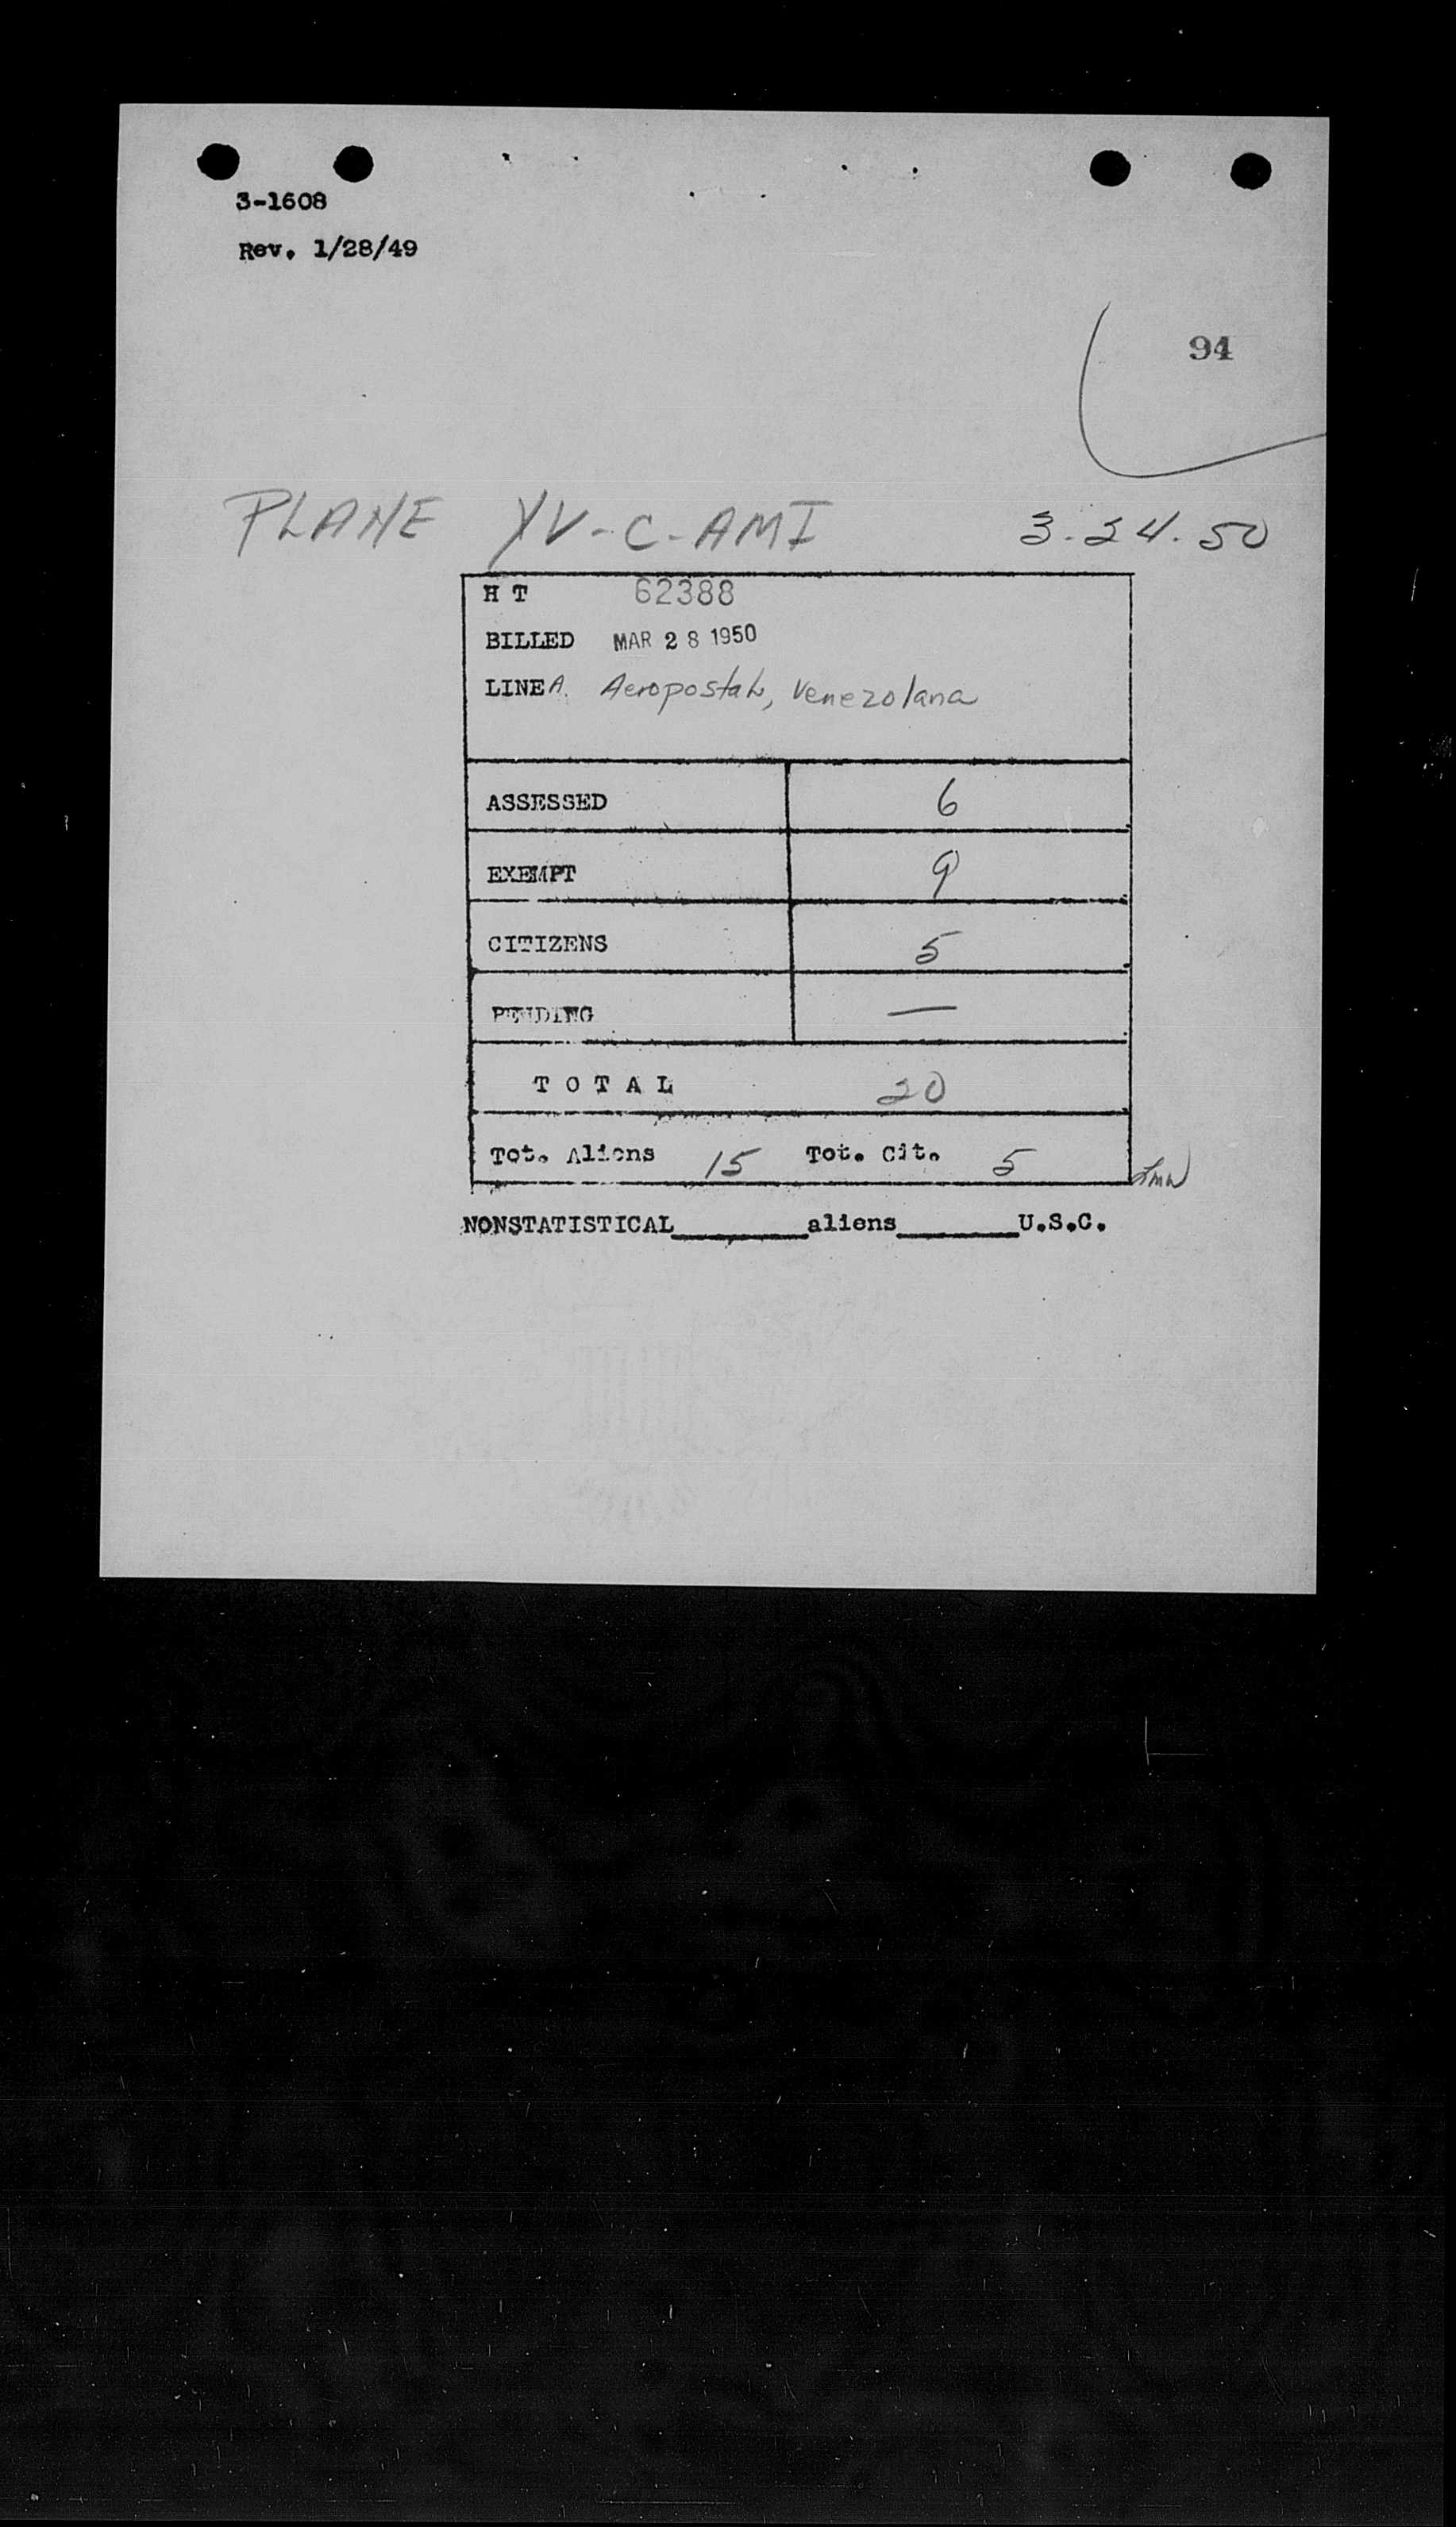 3-1608
Rev. 1/28/49
94
PLANE YV-C-AMI 3.24.50
H T 62388
BILLED MAR 28 1950
LINEA. Aeropostal, Venezolana
ASSESSED 6
EXEMPT 9
CITIZENS 5
PENDING —
T O T A L 20
Tot. Aliens 15 Tot. Cit. 5
NONSTATISTICAL________aliens________U.S.C.